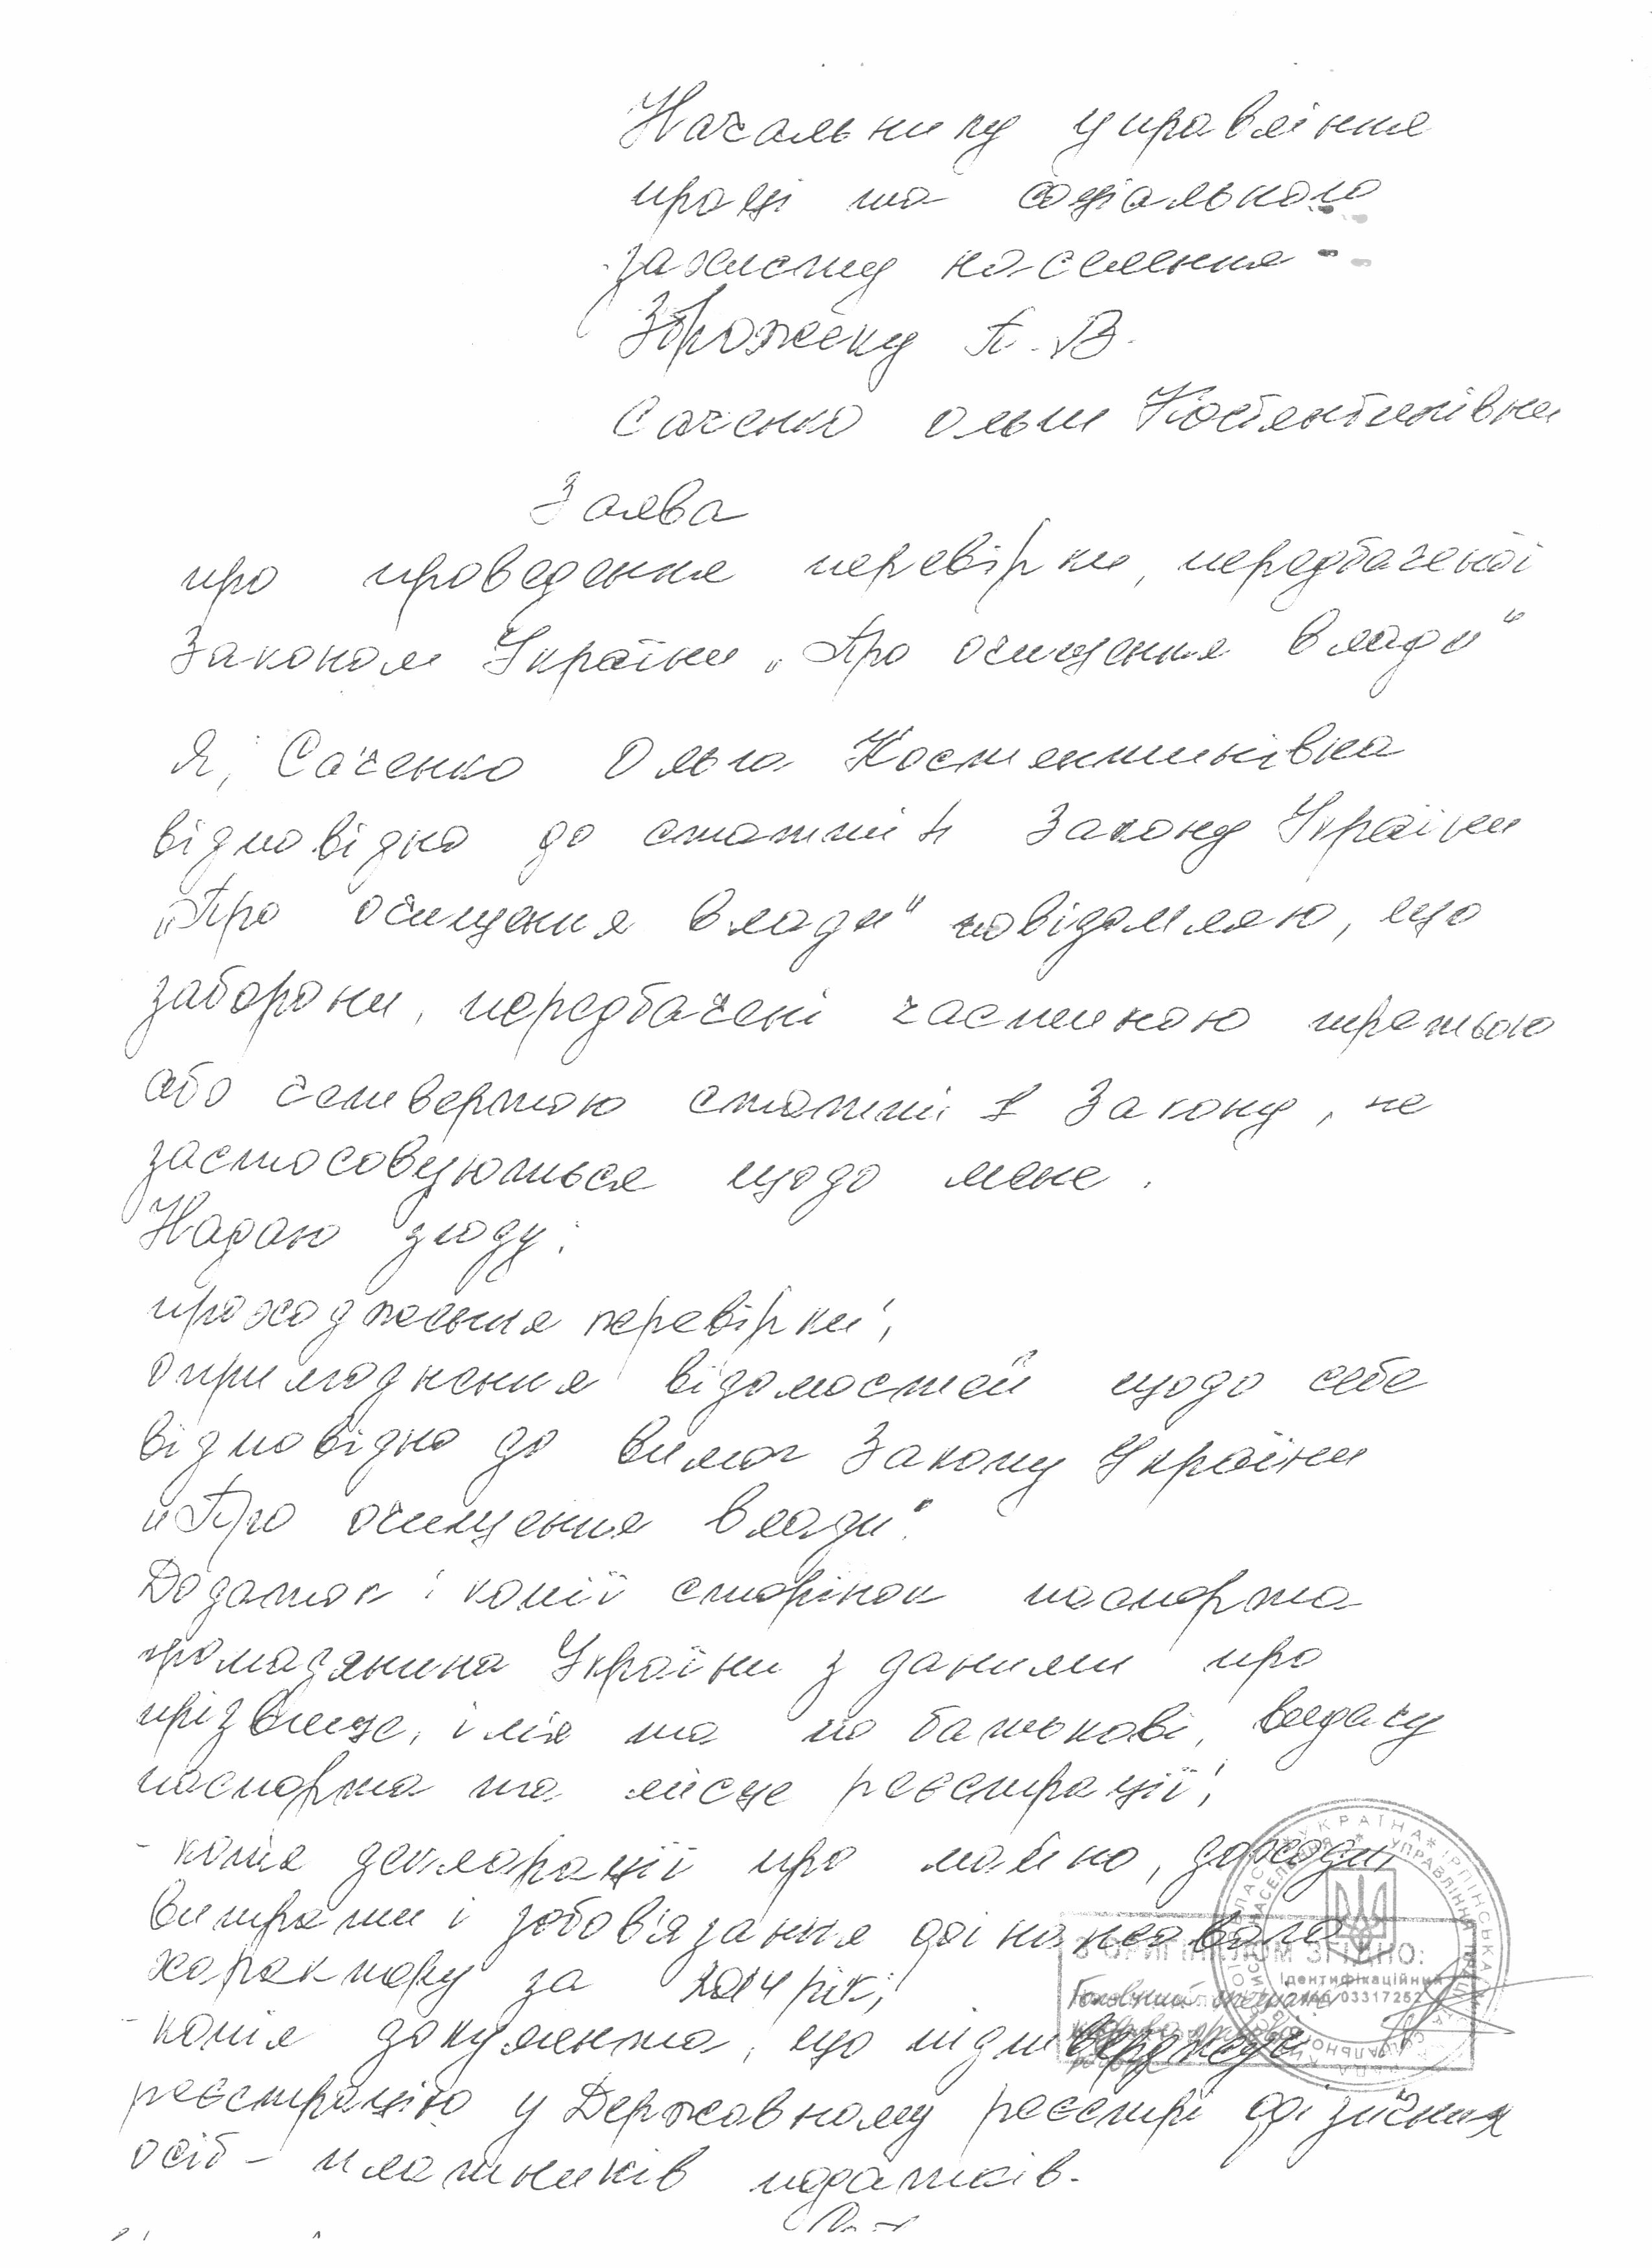 Начальнику управління
праці та соціального
захисту населення
Зброжеку П. В.
Саченко Ольги Костянтинівни
Заява
про проведення перевірки, передбаченої
Законом України „Про очищення влади“
Я, Саченко Ольга Костянтинівна
відповідно до статті 4 Закону України
„Про очищення влади“ повідомляю, що
заборони, передбачені частиною третьою
або четвертою статті 1 Закону, не
застосовуються щодо мене.
Надаю згоду:
проходження перевірки;
оприлюднення відомостей щодо себе
відповідно до вимог Закону України
„Про очищення влади“.
Додаток: копії сторінок паспорта
громадянина України з даними про
прізвище, імя та по батькові, видачу
паспорта та місце реєстрації;
- копія декларації про майно, доходи,
витрати і зобов'язання фінансового
характеру за 2014 рік;
- копія документа, що підтверджує
реєстрацію у Державному реєстрі фізичних
осіб - платників податків.
УКРАЇНА * ІРПІНСЬКА
УПРАВЛІННЯ ПРАЦІ
НАСЕЛЕННЯ
З ОРИГІНАЛОМ ЗГІДНО:
Ідентифікаційний
код 03317252
Головний спеціаліст